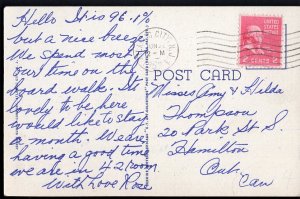 Hello It is 96.1%
but a nice breeze
We spend most of
our time on the
board walk. Its
lovely to be here
would like to stay
a month. We are
having a good time
we are in 42 room.
With Love Rose
POST CARD
Misses Amy & Hilda
Thompson
20 Park St S.
Hamilton
Ont.
Can
2 CENTS 2